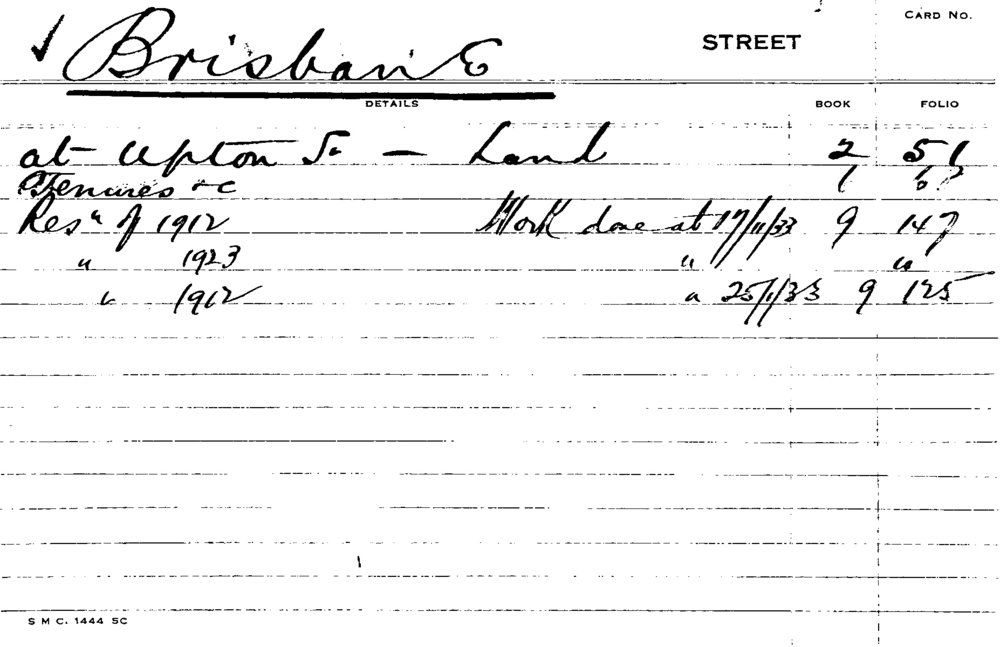 CARD NO.
✓ Brisbane STREET
DETAILS BOOK FOLIO
at Upton St - Land 2 51
Tenures &c 1
Resn of 1912 Work done at 17/11/33 9 147
" 1923 " "
" 1912 " 25/1/33 9 125
S M C. 1444 5C